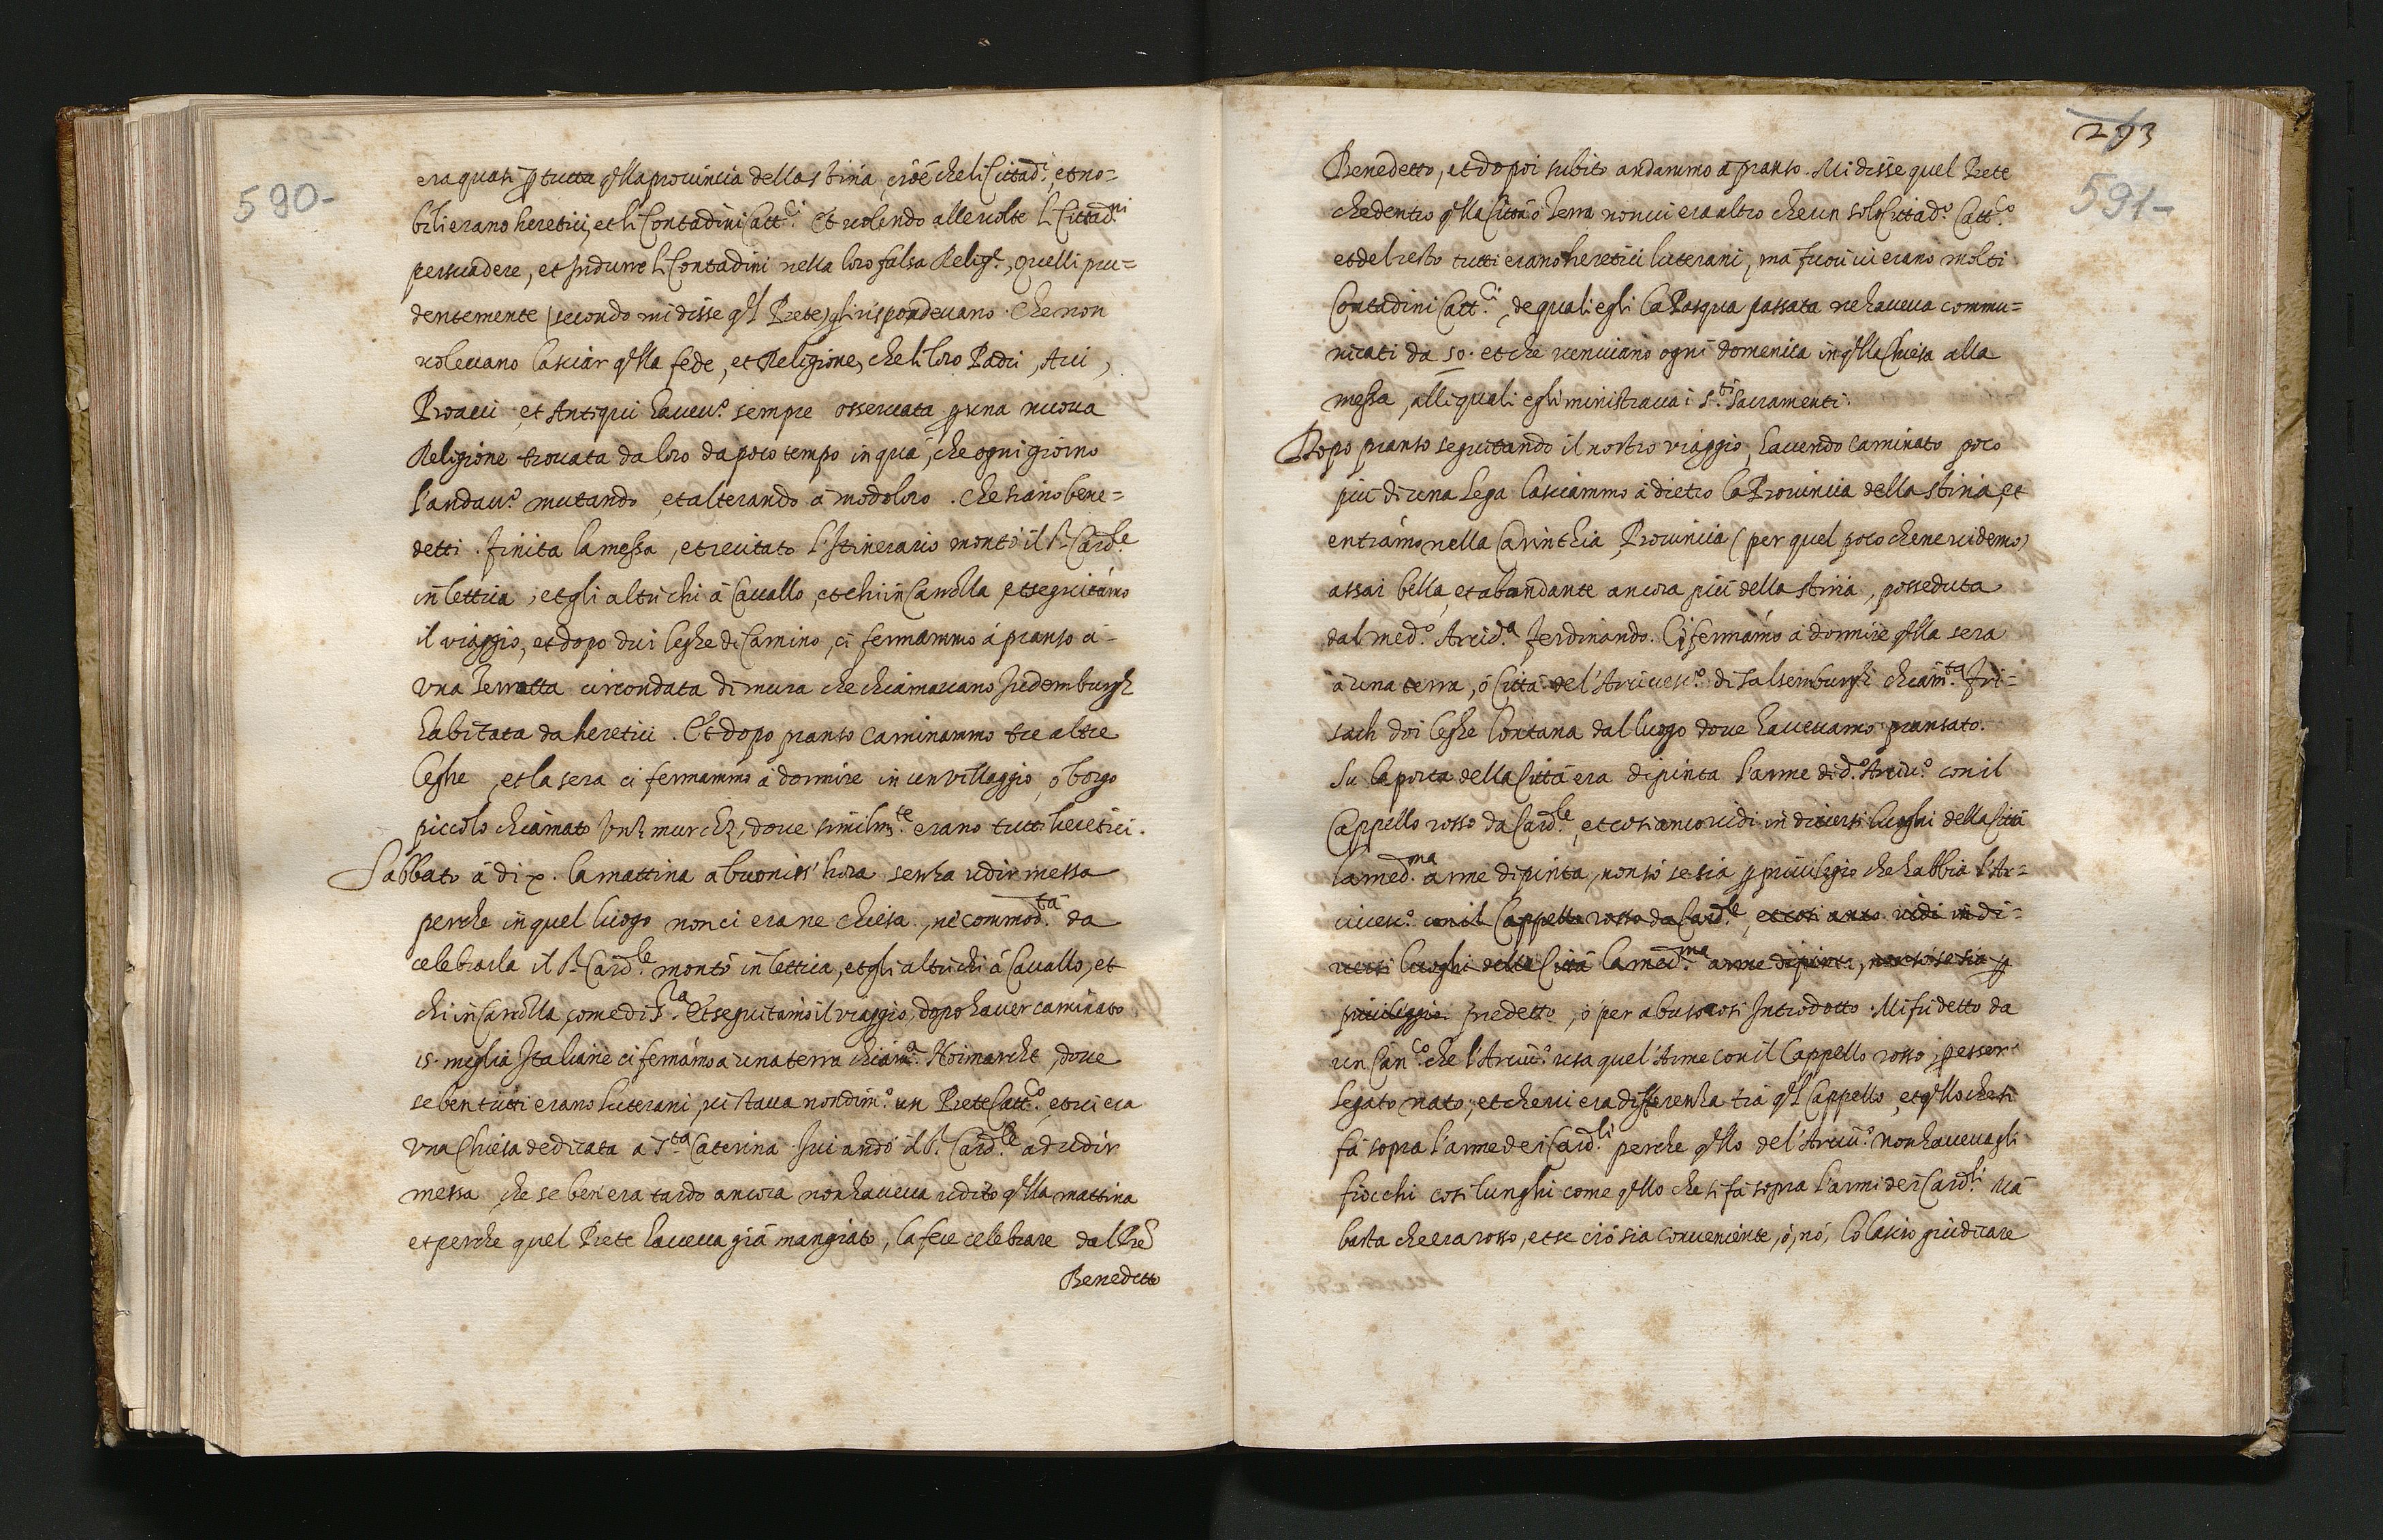 590-
era quasi p tutta q̃lla prouincia della Stiria, cioè che li Cittad.i, et no=
bili erano heretici, et li Contadini Catt.ci Et uolendo alle uolte li Cittad.ni
persuadere, et Indurre li Contadini nella loro falsa Relig.e, quelli pru=
dentemente (secondo mi disse q̃l Prete) gli rispondeuano. Che non
uoleuano lasciar q̃lla fede, et Religione, che li loro Padri, Aui,
Proaui, et Antiqui haueu.o sempre osseruata p una nuoua
Religione trouata da loro da poco tempo in quà, che ogni giorno
l'andau.o mutando, et alterando à modo loro. Che siano bene=
detti. Finita la messa, et recitato l'Itinerario montò il S.r Card.le
in lettica, et gli altri chi à Cauallo, et chi in Carozza, et seguitámo
il uiaggio, et dopo dui leghe di Camino, ci fermammo à pranso à
Vna Terretta circondata di mura che chiamauano Judemburgh
habitata da heretici. Et dopo pranso caminammo tre altre
leghe, et la sera ci fermammo à dormire in un uillaggio, ò borgo
piccolo chiamato Vnzmurchz, doue similm.te erano tutti heretici.
Sabbato à di x. la mattina a buoniss' hora senza udir messa
perche in quel luogo non ci era ne chiesa, nè commod.tà da
celebrarla il S.r Card.le montò in lettica, et gli altri chi à Cauallo, et
chi in Carozza, come di s.ra Et seguitámo il uiaggio, dopo hauer caminato
15. miglia Italiane ci fermámo à una terra chiam.a Noimarcht, doue
se ben tutti erano luterani, ui staua nondim.o un Prete Catt.co, et ui era
Vna Chiesa dedicata à S.ta Caterina. Iui andò il S.r Card.le ad udir
messa, che se ben era tardo ancora non haueua udito q̃lla mattina
et perche quel Prete haueua già mangiato, la fece celebrare dal Pre
Benedetto
293
591-
Benedetto, et dopoi subito andammo à pranso. Mi disse quel Prete
che dentro q̃lla Città ò Terra non ui era altro che un solo Cittad.o Catt.co
et del resto tutti erano heretici luterani, ma fuori ui erano molti
Contadini Catt.ci, de quali egli la Pasqua passata ne haueua commu=
nicati da 50. et che ueniuano ogni domenica in q̃lla Chiesa alla
messa, alli quali egli ministraua i S.ti Sacramenti.
Dopo pranso seguitando il nostro uiaggio, hauendo caminato poco
più di una lega lasciammo à dietro la Prouincia della Stiria, et
entrámo nella Carinthia, Prouincia (per quel poco che ne uidemo)
assai bella, et abondante ancora più della Stiria, posseduta
dal med.o Arcid.a Ferdinando. Ci fermámo à dormire q̃lla sera
à una terra, ò Città del'Arciuesc.o di Salsemburgh chiam.ta Fri=
sach doi leghe lontana dal luogo doue haueuamo pransato.
Su la porta della Città era dipinta l'arme di d.o Arciu.o con il
Cappello rosso da Card.le, et così anco uidi in diuersi luoghi della Città
la med.ma arme dipinta, non sò se sia p priuilegio che habbia l'Ar=
ciuesc.o con il Cappello rosso da Card.le, et così anco uidi in di=
uersi luoghi della Città la med.ma arme dipinta, non sò se sia p
priuileggio predetto, ò per abuso così Introdotto. Mi fù detto da
un Can.co che l'Arciu.o usa quel'Arme con il Cappello rosso, p esser
Legato nato, et che ui era differenza trà q̃l Cappello, et q̃llo che si
fà sopra l'arme dei Card.li perche q̃llo del'Arciu.o non haueua gli
fiocchi così lunghi come q̃llo che si fà sopra l'armi dei Card.li Mà
basta che era rosso, et se ciò sia conueniente, ò, nò, lo lascio giudicare